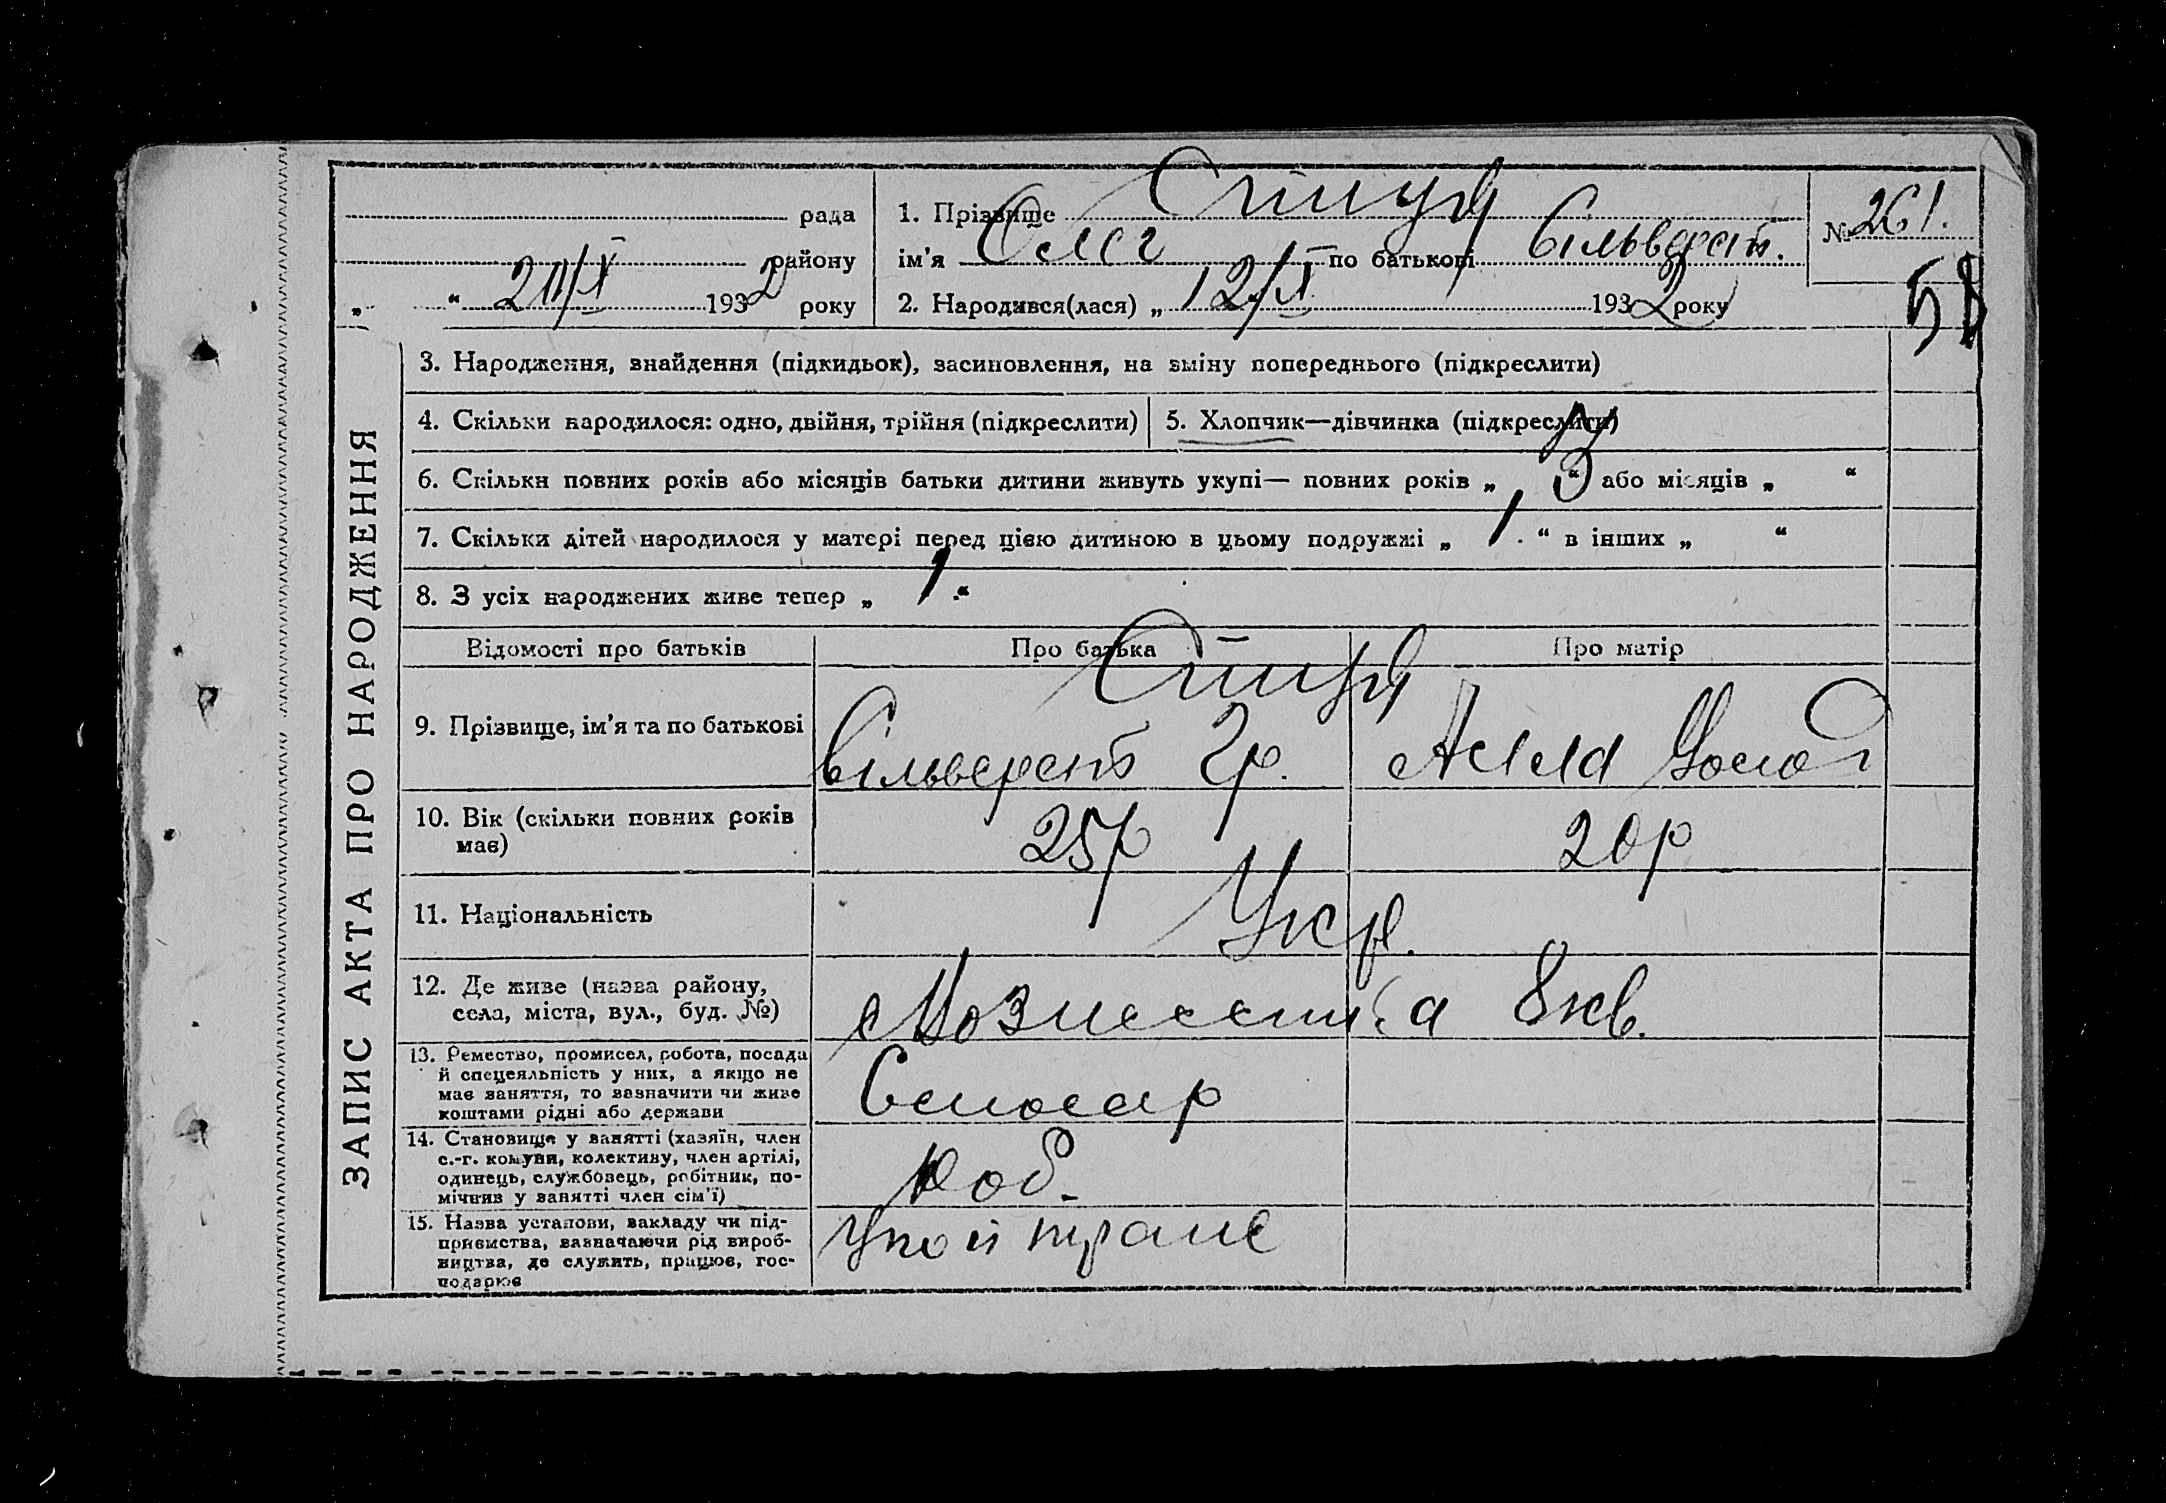 рада
району
„ “ 193 2 року
1. Прізвище
№ 261.
ім’я Олег по батькові Сільверст.
2. Народився(лася) „ 12/X 193 2 року
58
ЗАПИС АКТА ПРО НАРОДЖЕННЯ
3. Народження, знайдення (підкидьок), засиновлення, на зміну попереднього (підкреслити)
4. Скільки народилося: одно, двійня, трійня (підкреслити)
5. Хлопчик—дівчинка (підкреслити)
6. Скільки повних років або місяців батьки дитини живуть укупі— повних років „ 3 “ або місяців „ “
7. Скільки дітей народилося у матері перед цією дитиною в цьому подружжі „ 1 “ в інших „ “
8. З усіх народжених живе тепер „ 1 “
Відомості про батьків
Про батька
Про матір
9. Прізвище, ім’я та по батькові
Сільверст Гр.
Алла
10. Вік (скільки повних років
має)
25р
20р
11. Національність
Укр.
12. Де живе (назва району,
села, міста, вул., буд. №)
8 кв.
13. Ремество, промисел, робота, посада
й спецеяльність у них, а якщо не
має заняття, то зазначити чи живе
коштами рідні або держави
Слюсар
14. Становище у занятті (хазяїн, член
с.-г. комуни, колективу, член артілі,
одинець, службовець, робітник, по-
мічник у занятті член сім’ї)
Роб.
15. Назва установи, закладу чи під-
приємства, зазначаючи рід вироб-
ництва, де служить, працює, гос-
подарює